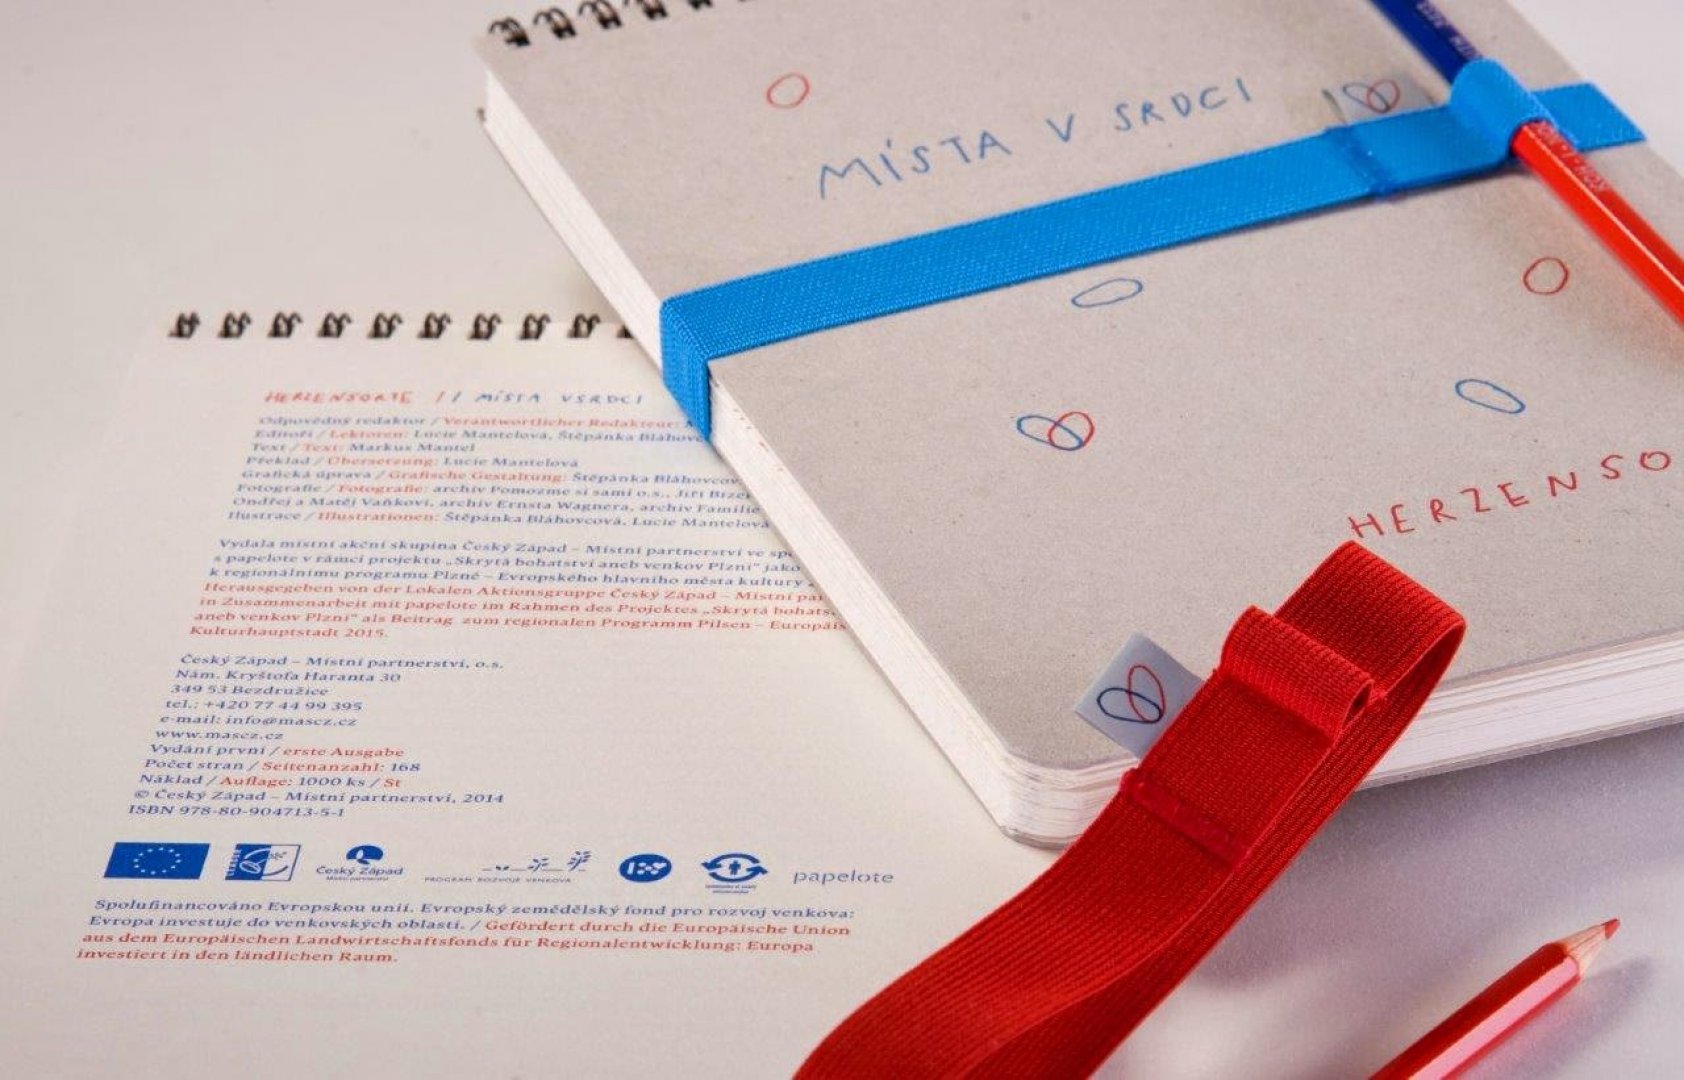 MÍSTA V SRDCI
HERZENSO
HERZENSORTE // MÍSTA V SRDCI
Odpovědný redaktor / Verantwortlicher Redakteur:
Editoři / Lektoren: Lucie Mantelová, Štěpánka Bláhovc
Text / Text: Markus Mantel
Překlad / Übersetzung: Lucie Mantelová
Grafická úprava / Grafische Gestaltung: Štěpánka Bláhovcov
Fotografie / Fotografie: archiv Pomozme si sami o.s., Jiří Bízek
Ondřej a Matěj Vaňkovi, archiv Ernsta Wagnera, archiv Familie
Ilustrace / Illustrationen: Štěpánka Bláhovcová, Lucie Mantelová
Vydala místní akční skupina Český Západ – Místní partnerství ve sp
s papelote v rámci projektu „Skrytá bohatství aneb venkov Plzni“ jako
k regionálnímu programu Plzně – Evropského hlavního města kultury
Herausgegeben von der Lokalen Aktionsgruppe Český Západ – Místní par
in Zusammenarbeit mit papelote im Rahmen des Projektes „Skrytá bohats
aneb venkov Plzni“ als Beitrag zum regionalen Programm Pilsen – Europäis
Kulturhauptstadt 2015.
Český Západ – Místní partnerství, o.s.
Nám. Kryštofa Haranta 30
349 53 Bezdružice
tel.: +420 77 44 99 395
e-mail: info@mascz.cz
www.mascz.cz
Vydání první / erste Ausgabe
Počet stran / Seitenanzahl: 168
Náklad / Auflage: 1000 ks / St
© Český Západ – Místní partnerství, 2014
ISBN 978-80-904713-5-1
LEADER
Český Západ
PROGRAM ROZVOJE VENKOVA
papelote
Spolufinancováno Evropskou unií. Evropský zemědělský fond pro rozvoj venkova:
Evropa investuje do venkovských oblastí. / Gefördert durch die Europäische Union
aus dem Europäischen Landwirtschaftsfonds für Regionalentwicklung: Europa
investiert in den ländlichen Raum.